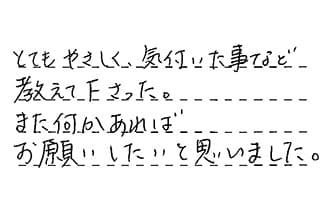 とてもやさしく、気付いた事など
教えて下さった。
また何かあれば
お願いしたいと思いました。